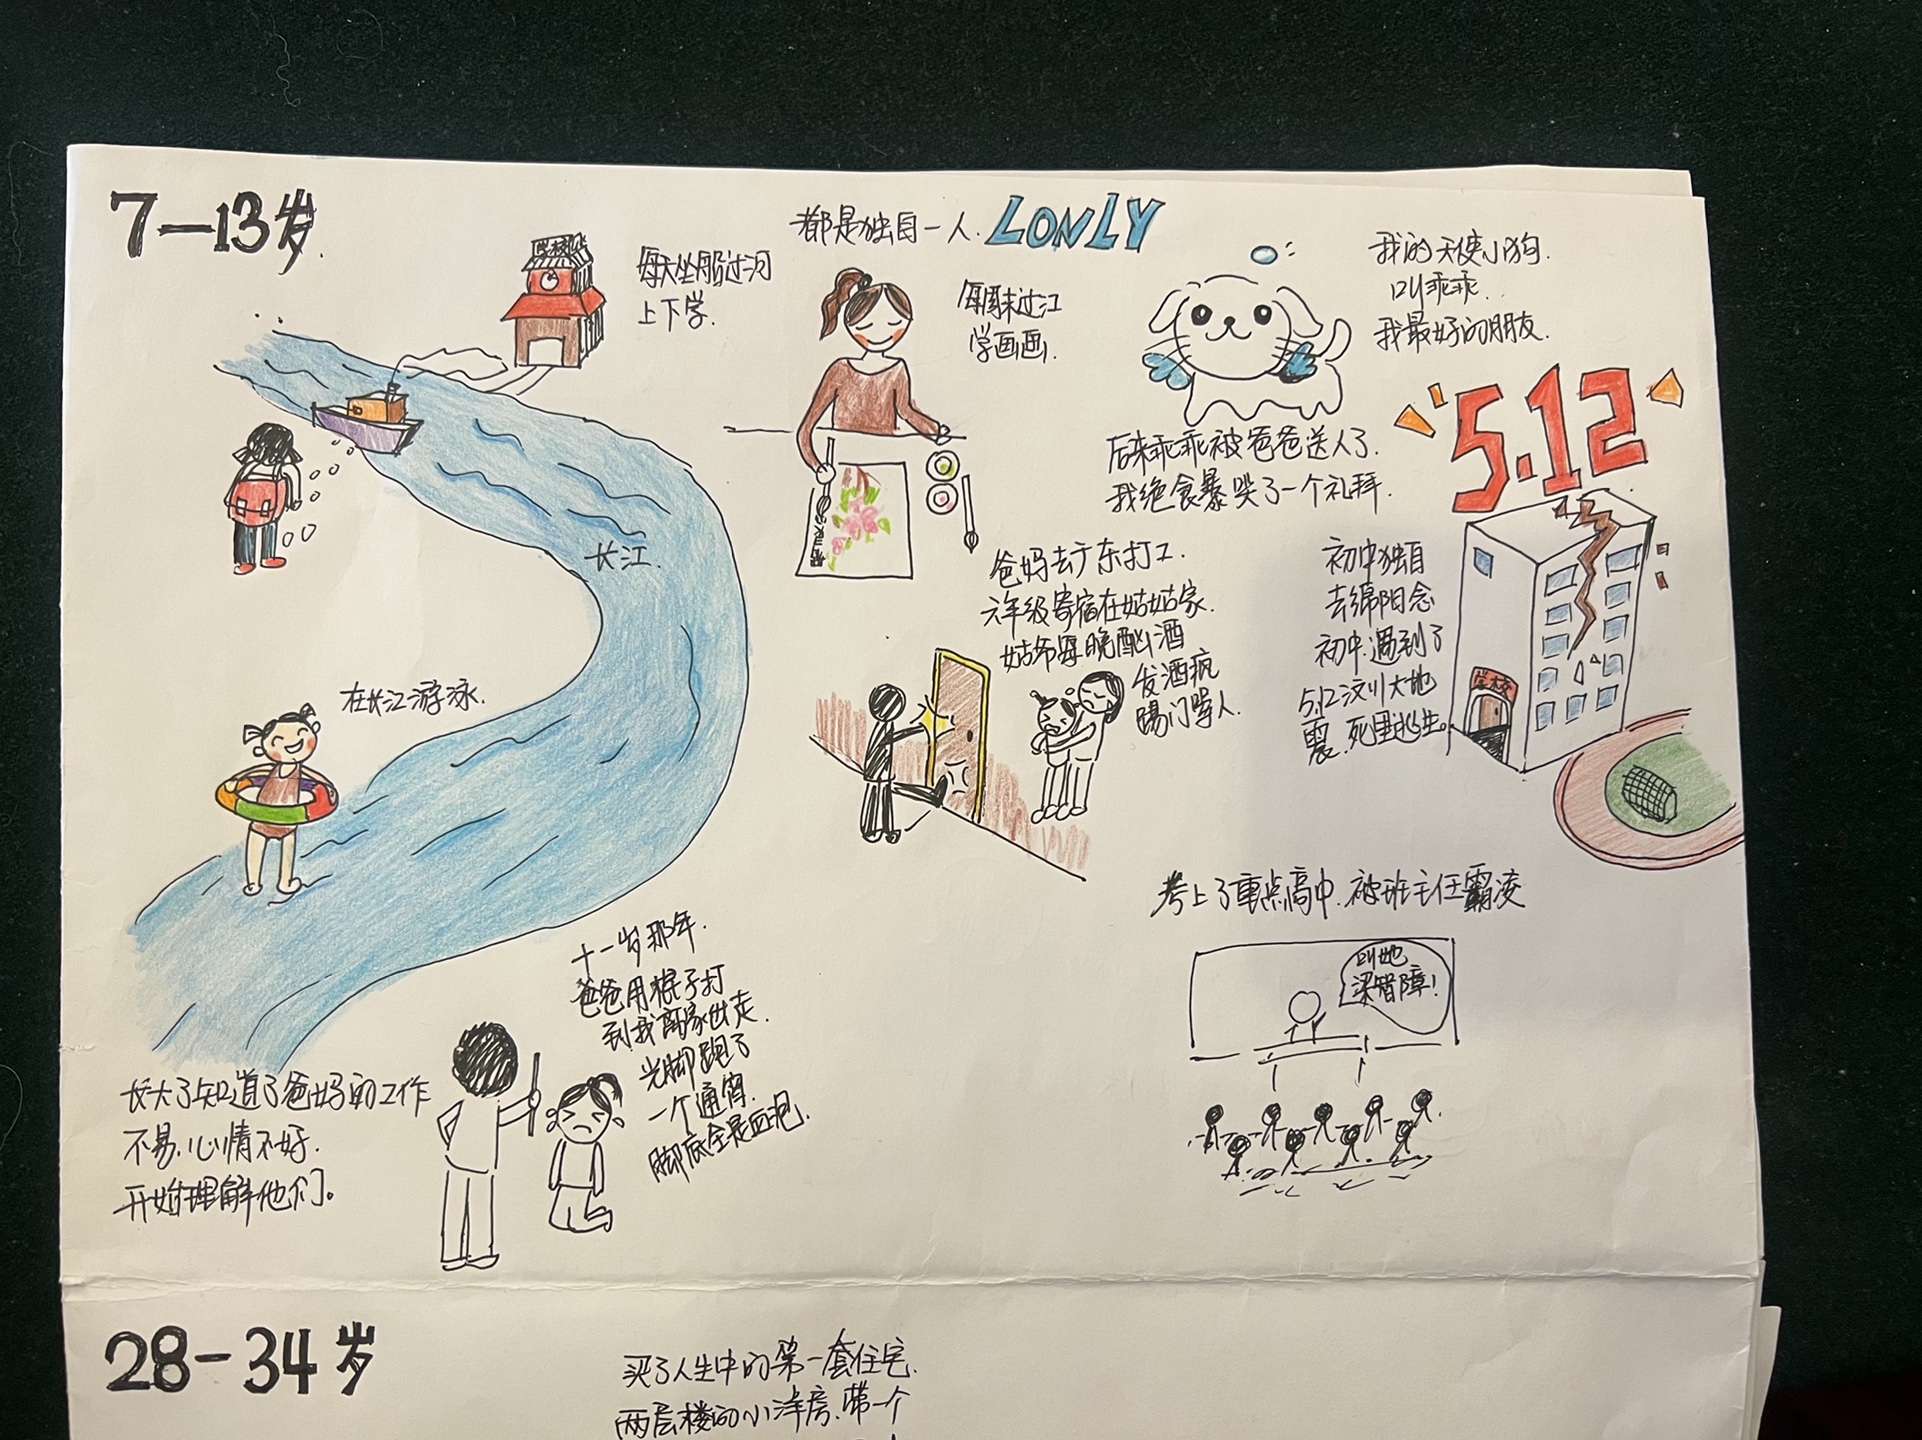 7—13岁.
学校
每天坐船过河
上下学.
都是独自一人. LONLY
每周末过江
学画画.
我的天使小狗.
叫乖乖.
我最好的朋友.
后来乖乖被爸爸送人了.
我绝食暴哭了一个礼拜.
5.12
长江.
在长江游泳.
爸妈去广东打工.
六年级寄宿在姑姑家.
姑爷每晚酗酒
发酒疯
踢门骂人.
初中独自
去绵阳念
初中.遇到了
5.12汶川大地
震.死里逃生。
学校
十一岁那年.
爸爸用棍子打
到我离家出走.
光脚跑了
一个通宵.
脚底全是血泡.
长大了知道了爸妈的工作
不易.心情不好.
开始理解他们。
考上了重点高中.被班主任霸凌
叫她
梁智障!
28-34岁
买了人生中的第一套住宅.
两层楼的小洋房.带一个